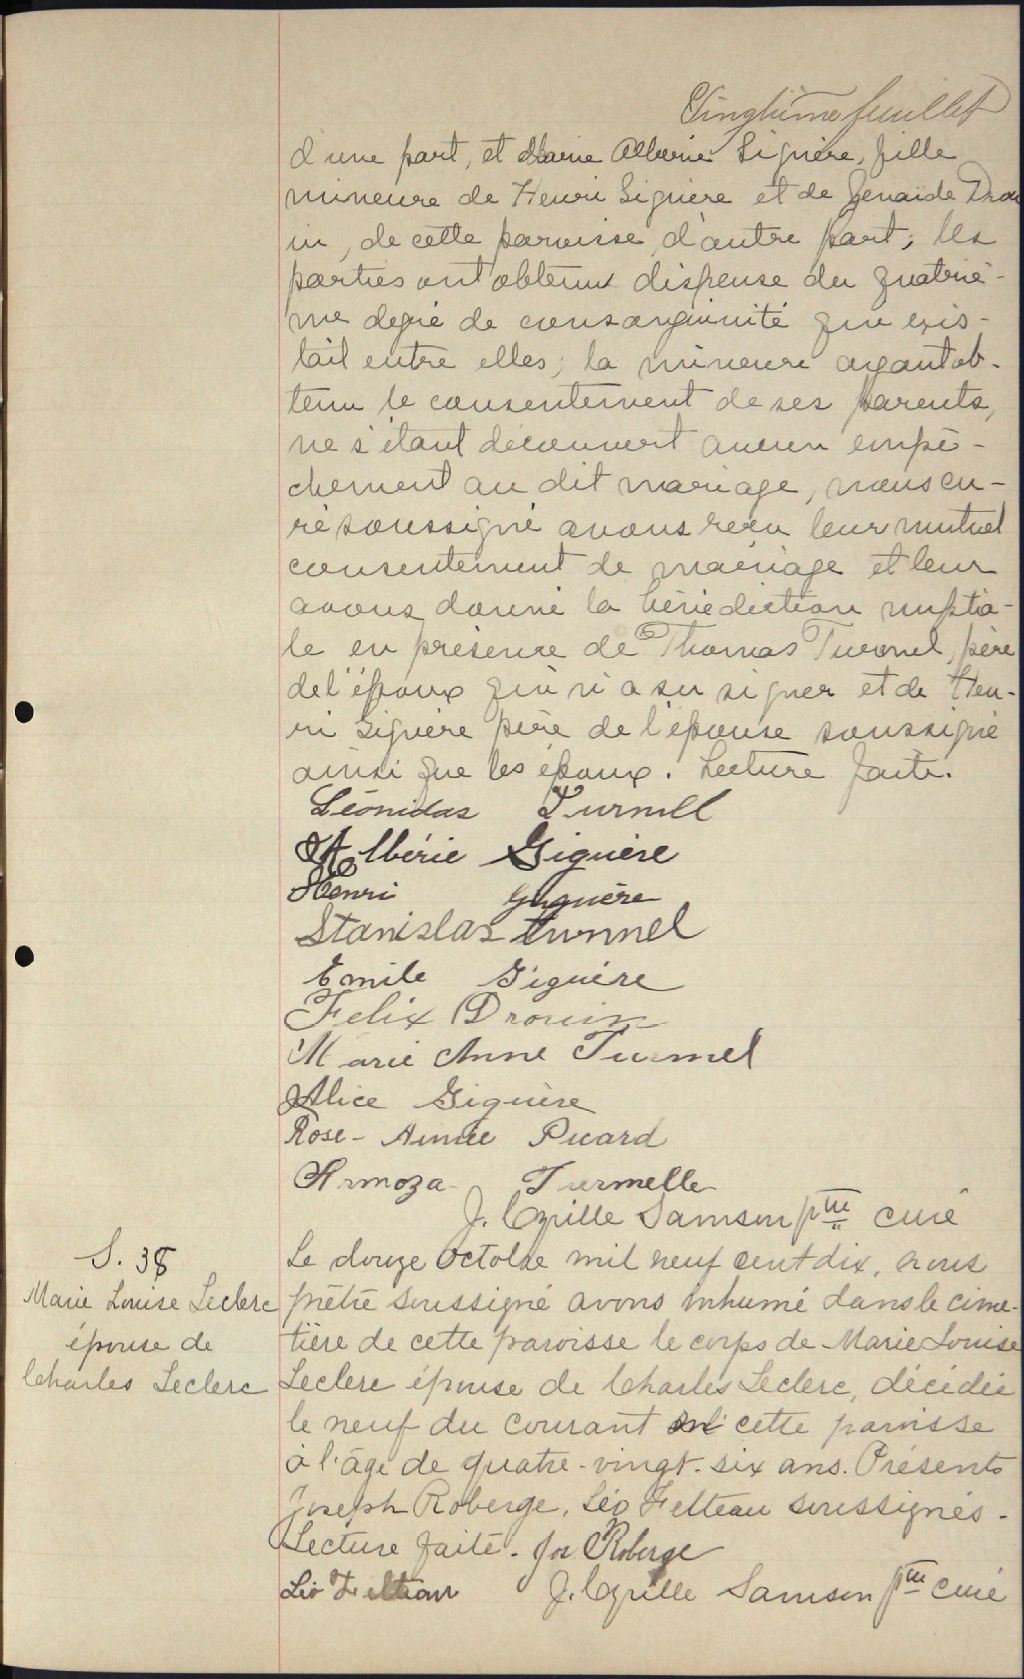 Vingtième feuillet
d'une part, et Marie Albérie Giguère, fille
mineure de Henri Giguère et de Zenaïde Drou
in, de cette paroisse, d'autre part; les
parties ont obtenu dispense du quatriè-
me degré de consanguinité qui exis-
tait entre elles; la mineure ayant ob-
tenu le consentement de ses parents,
ne s'étant découvert aucun empê-
chement au dit mariage, nous cu-
ré soussigné avons reçu leur mutuel
consentement de mariage et leur
avons donné la bénédiction nuptia-
le en présence de Thomas Turmel, père
de l'époux qui n'a su signer et de Hen-
ri Giguère père de l'épouse soussigné
ainsi que les époux. Lecture faite.
Léonidas Turmel
M Albérie Giguère
Henri Giguère
Stanislas Turmel
Emile Giguère
Felix Drouin
Marie Anne Turmel
Alice Giguère
Rose-Aimée Picard
Armoza Turmelle
J. Cyrille Samson ptre curé
S. 38
Marie Louise Leclerc
épouse de
Charles Leclerc
Le douze octobre mil neuf cent dix, nous
prêtre soussigné avons inhumé dans le cime-
tière de cette paroisse le corps de Marie Louise
Leclerc épouse de Charles Leclerc, décédée
le neuf du courant en cette paroisse
à l'âge de quatre-vingt-six ans. Présents
Joseph Roberge, Léo Felteau soussignés.
Lecture faite. Jos Roberge
Léo Felteau J. Cyrille Samson ptre curé